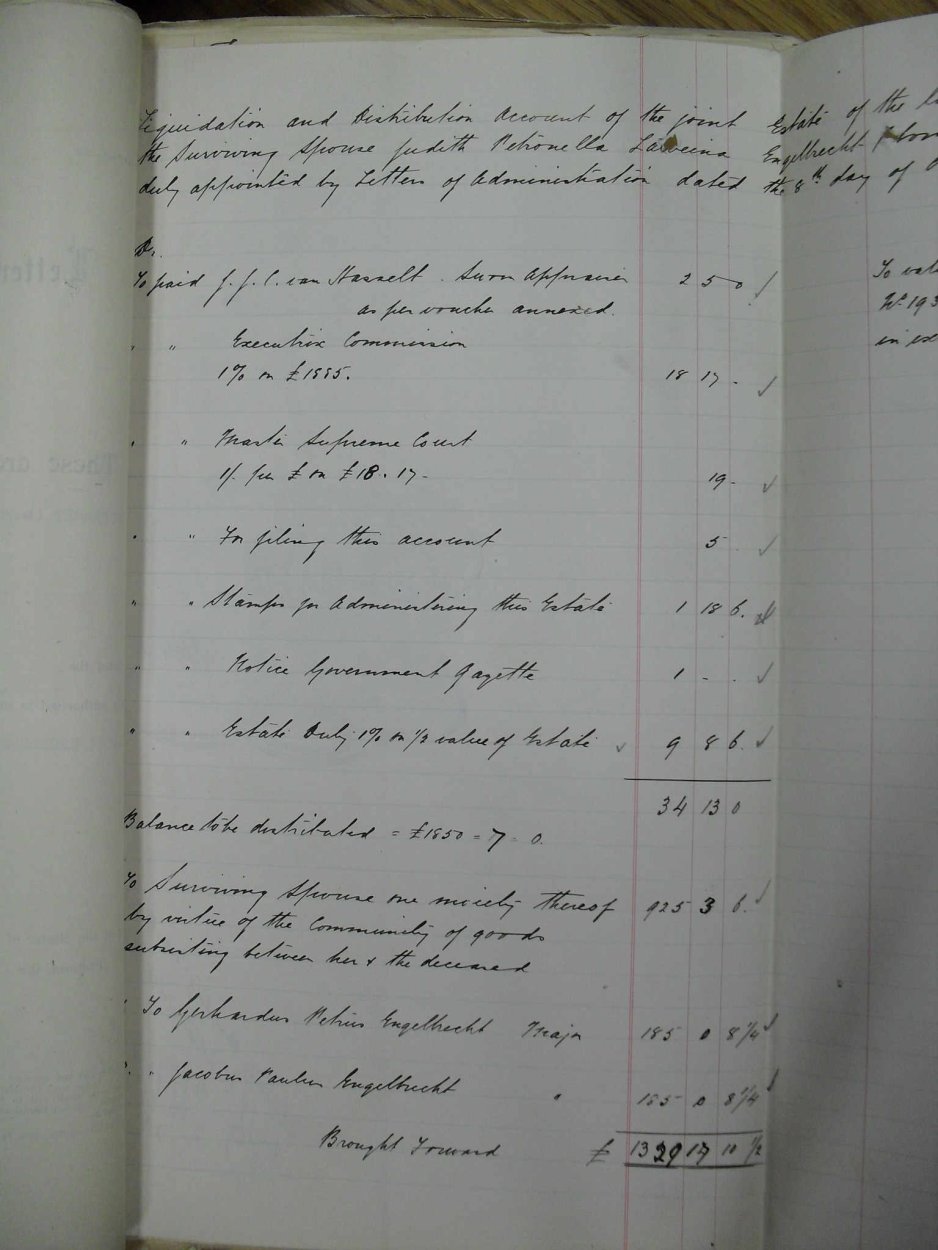 Liquidation and Distribution Account of the joint Estate of the
the Surviving Spouse Judith Petronella Engelbrecht
duly appointed by Letters of Administration dated the 8th day of
Dr.
To paid J. J. C. van Hasselt. Sworn Appraiser 2 5 0
as per voucher annexed.
" " Executrix Commission
1% on £1885. 18 17 -
" " Master Supreme Court
1/- per £ on £18.17- 19 -
" " For filing this account 5
" " Stamps for Administering this Estate 1 18 6.
" " Notice Government Gazette 1 - .
" " Estate Duty 1% on 1/2 value of Estate 9 8 6.
34 13 0
Balance to be distributed = £1850 = 7 = 0.
To Surviving Spouse one moiety thereof 925 3 6.
by virtue of the Community of goods
subsisting between her & the deceased
" To Gerhardus Petrus Engelbrecht Major 185 0 8 1/4
" " Jacobus Paulus Engelbrecht " 185 0 8 1/4
Brought Forward £ 1329 17 10 1/2
To
No 193
in